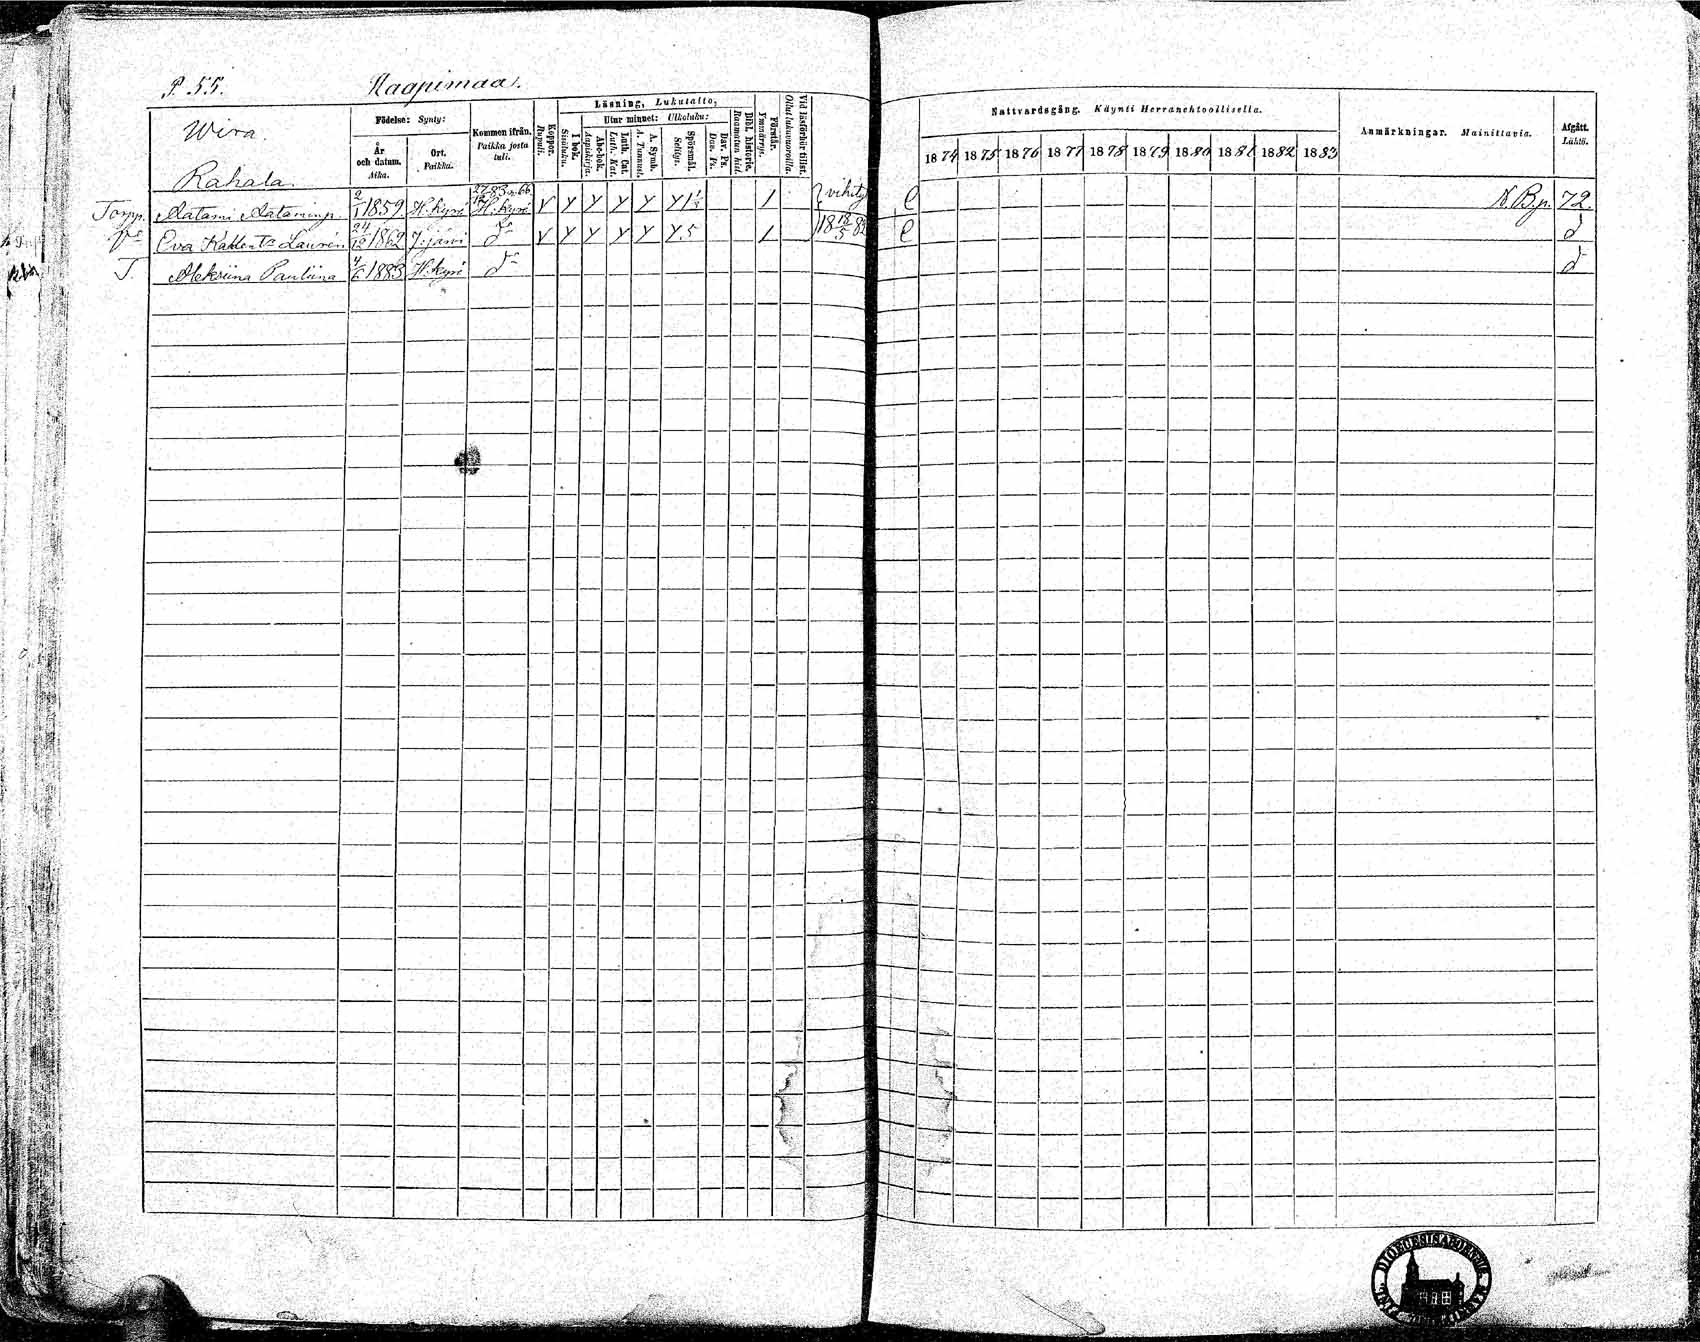 P. 55. Raapimaa.
Wira.
Rahala.
Födelse: Synty:
År och datum. Aika.
Ort. Paikka.
Kommen ifrån. Paikka josta tuli.
Koppor. Rupuli.
Läsning, Lukutaito,
I bok. Sisäluku.
Utur minnet: Ulkoluku:
Abc-bok. Aapiskirja.
Luth. Cat. Luth. Kat.
A. Symb. A. Tunnust.
Spörsmål. Selitys.
Dav. Ps. Dav. Ps.
Bibl. historie. Raamatun hist.
Förstår. Ymmärrys.
Vid läsförhör tillst. Ollut lukuvuoroilla.
Nattvardsgång. Käynti Herranehtoollisella.
1874 1875 1876 1877 1878 1879 1880 1881 1882 1883
Anmärkningar. Mainittavia.
Afgått. Lähtö.
Torpp. Aatami Aataminp. 2/1 1859 H:kyrö H:kyrö V Y Y Y Y Y 1 vihityt C N.B.p. 72.
Eva Kallent: Laurén 24/12 1862 J:järvi d:o V Y Y Y Y Y 5 1 18 18/5 82 C d
T. Aleksiina Pauliina 4/6 1883 H:kyrö d:o d
DIOECESIS ABOENSIS